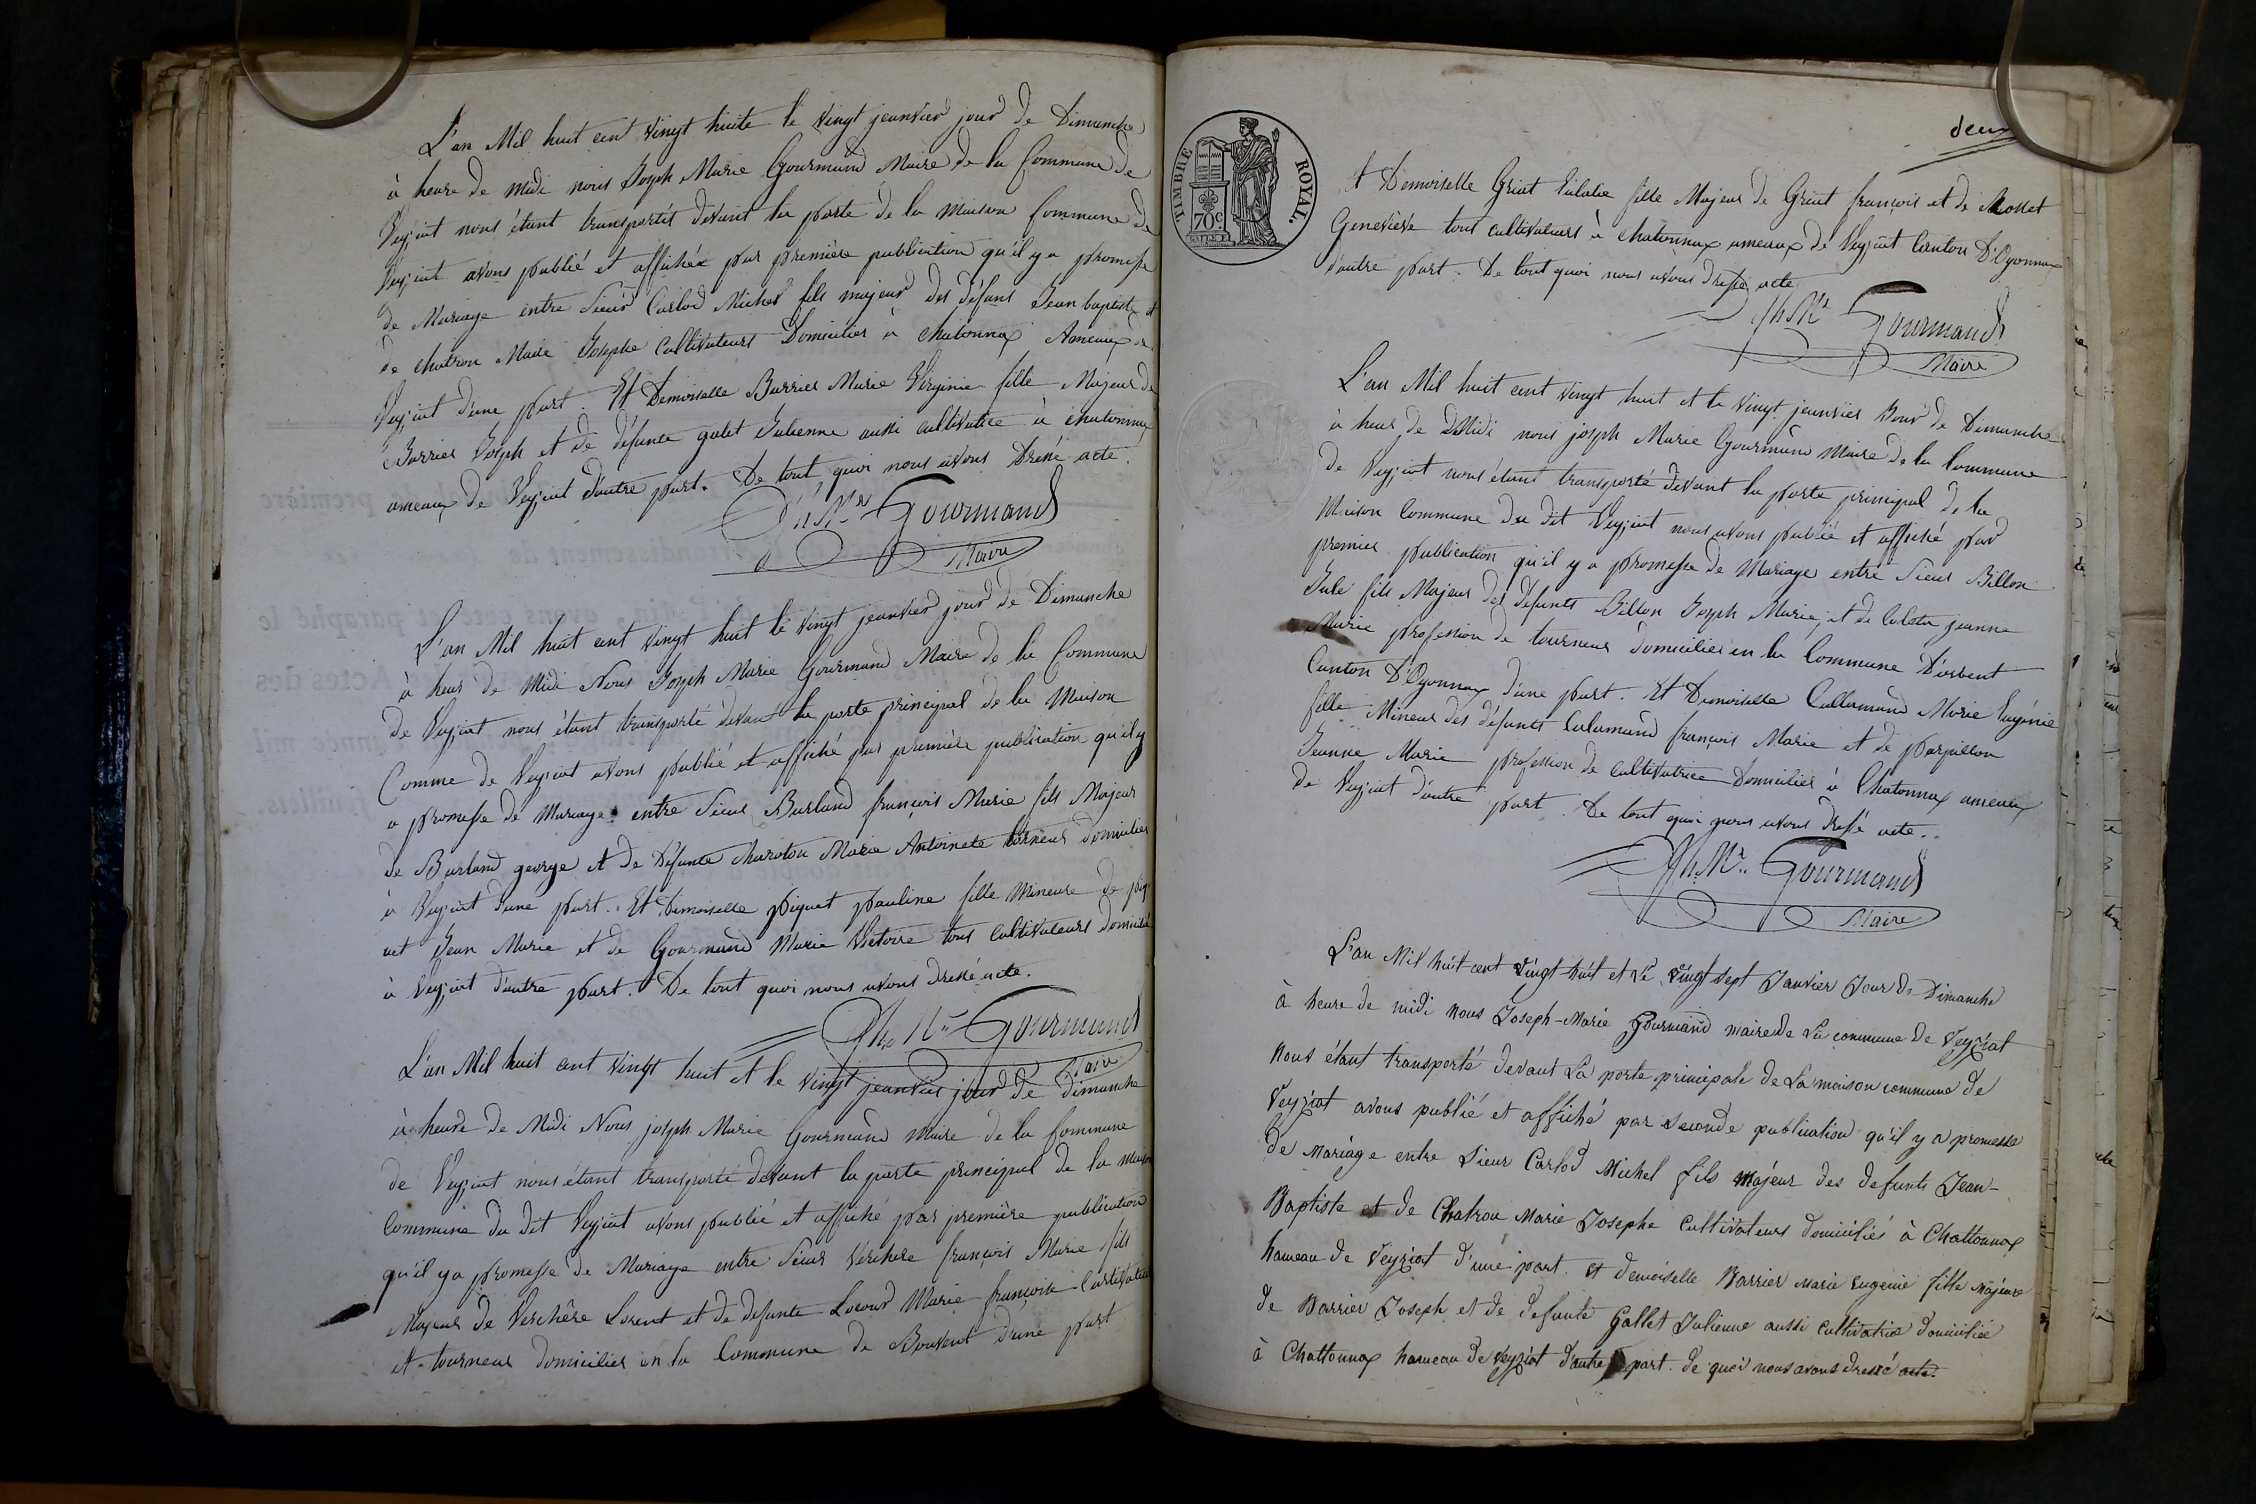 L'an Mil huit cent vingt huite le vingt jeanvier jour de Dimanche
à heure de midi nous Joseph Marie Gourmand Maire de la Commune de
Veyziat nous étant transportét devant la porte de la Maison Commune de
Veyziat avons publié et affichée par première publication qu'il y a promesse
de Mariage entre Sieur Carlod Michel fils majeur des défunts Jean baptiste et
de chatron Marie Josephe Cultivateurs Domicilier à chatonnax Ameaux de
Veyziat d'une part. Et Demoiselle Barrier Marie Virginie fille Majeur de
Barrier Joseph et de défunte galet Julienne aussi cultivatice à chatonnax
ameaux de Veyziat d'autre part. De tout quoi nous avons Dréssé acte.
Jh Mie Gourmand
Maire
L'an Mil huit cent vingt huit le vingt jeanvier jour de Dimanche
à heur de Midi Nous Joseph Marie Gourmand Maire de la Commune
de Veyziat nous étant transporté devant la porte principal de la Maison
Comme de Veyziat avons publié et affiché par première publication qu'il y
a promesse de Mariage entre Sieur Burland françois Marie fils Majeur
de Burland george et de Défunte charoton Marie Antoinete torneur domicilier
à Veyziat d'une part. Et Demoiselle piquet pauline fille Mineure de piq-
uet Jean Marie et de Gourmand Marie Victoire tous cultivateurs domicilié
à Veyziat d'autre part. De tout quoi nous avons Dressé acte.
Jh Mie Gourmand
Maire
L'an Mil huit cent vingt huit et le vingt jeanvier jour de dimanche
à heure de Midi Nous joseph Marie Gourmand Maire de la Commune
de Veyziat nous étant transporté devant la porte principal de la maison
Commune du dit Veyziat avons publié et affiché par première publication
qu'il y a promesse de Mariage entre Sieur Verchere françois Marie fils
Majeur de Verchère Lorent et de defunte Locour Marie françoise Cultivateur
et tourneur domicilier en la Commune de Bouvent d'une part
deux
TIMBRE ROYAL.
70 c
Et Demoiselle Griot Eulalie fille Majeur de Griot françois et de Mollet
Geneviève tout cultivateurs à chatonnax ameaux de Veyziat Canton D'Oyonnax
d'autre part. De tout quoi nous avons dressé acte
Jh Mie Gourmand
Maire
L'an Mil huit cent vingt huit et le vingt jeanvier Jour de Dimanche
à heur de Midi nous joseph Marie Gourmand Maire de la Commune
de Veyziat nous étant transporté devant la porte principal de la
Maison Commune du dit Veyziat nous avons publié et affiché par
premier publication qu'il y a promesse de Mariage entre Sieur Billon
Jule fils Majeur des défunts Billon Joseph Marie, et de Coleta jeanne
Marie profession de tourneur domicilier en la Commune D'arbent
Canton D'Oyonnax d'une part. Et Demoiselle Callamand Marie Eugénie
fille Mineur des défunts Calamand françois Marie et de papillon
Jeanne Marie profession de cultivatrice Domicilier à Chatonnax ameaux
de Veyziat d'autre part. De tout quoi nous avons dressé acte.
Jh Mie Gourmand
Maire
L'an Mil huit cent vingt huit et le vingt sept Janvier Jour de Dimanche
à heure de midi nous Joseph-Marie Gourmand maire de la commune de Veyziat
nous étant transporté devant la porte principale de la maison commune de
Veyziat avons publié et affiché par seconde publication qu'il y a promesse
de mariage entre sieur Carlod Michel fils majeur des defunts Jean-
Baptiste et de Chatron Marie Josephe cultivateurs domiciliés à Chattonnax
hameau de Veyziat d'une part. et demoiselle Barrier Marie Eugenie fille Majeure
de Barrier Joseph et de defunte Gallet Julienne aussi cultivatrice domiciliée
à Chattonnax hameau de Veyziat d'autre part. de quoi nous avons dressé acte.